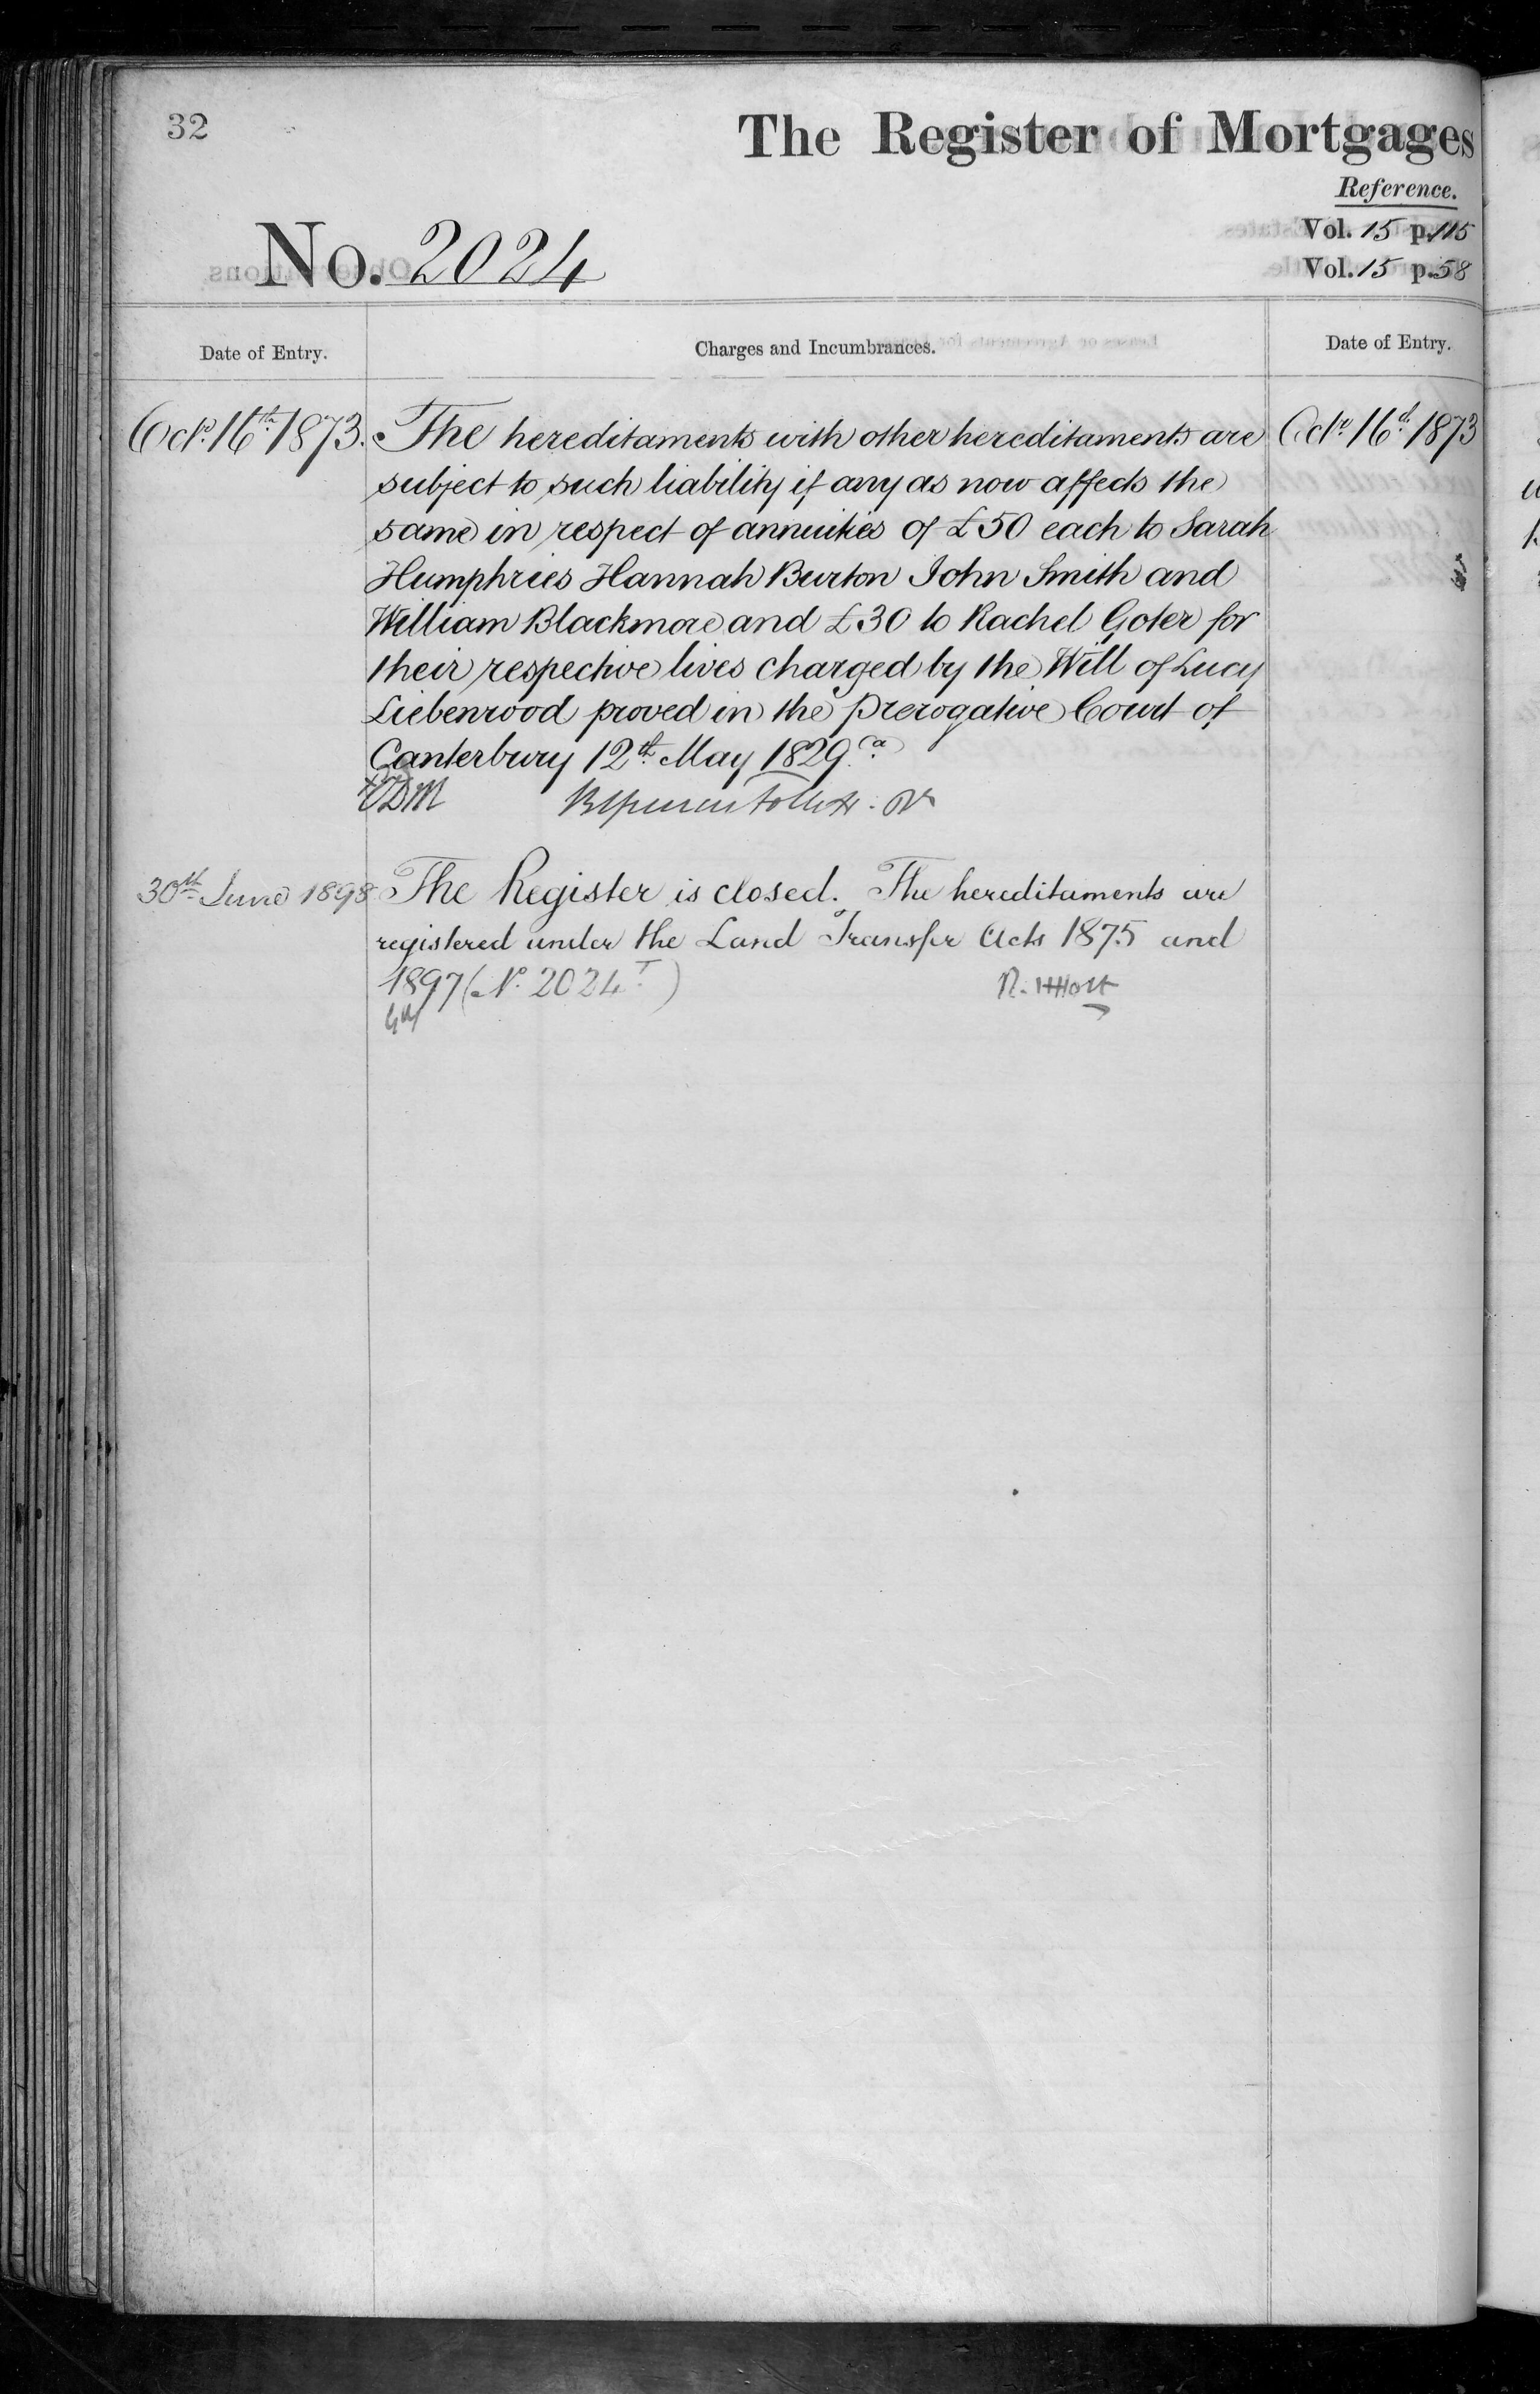 32
The Register of Mortgages
Reference.
Vol. 15 p. 115
Vol. 15 p. 58
No. 2024
Date of Entry.
Charges and Incumbrances.
Date of Entry.
Octr. 16th 1873.
The hereditaments with other hereditaments are
subject to such liability if any as now affects the
same in respect of annuities of £50 each to Sarah
Humphries Hannah Burton John Smith and
William Blackmore and £30 to Rachel Goter for
their respective lives charged by the Will of Lucy
Liebenrood proved in the Prerogative Court of
Canterbury 12th May 1829.
Octr. 16th 1873
30th June 1898
The Register is closed. The hereditaments are
registered under the Land Transfer Acts 1875 and
1897 (No. 2024 T)
R. H Holt